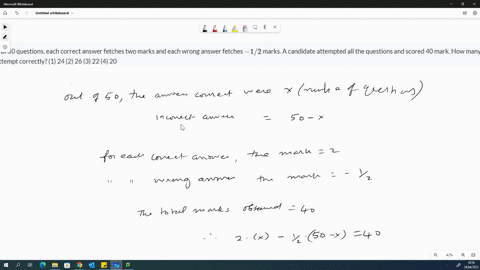 Untitled whiteboard
50 questions, each correct answer fetches two marks and each wrong answer fetches −1/2 marks. A candidate attempted all the questions and scored 40 mark. How many
tempt correctly? (1) 24 (2) 26 (3) 22 (4) 20
out of 50, the answer correct were x (number of questions)
incorrect answer = 50 - x
for each correct answer, the mark = 2
" " wrong answer the mark = - 1/2
The total marks obtained = 40
∴ 2·(x) - 1/2·(50-x) = 40